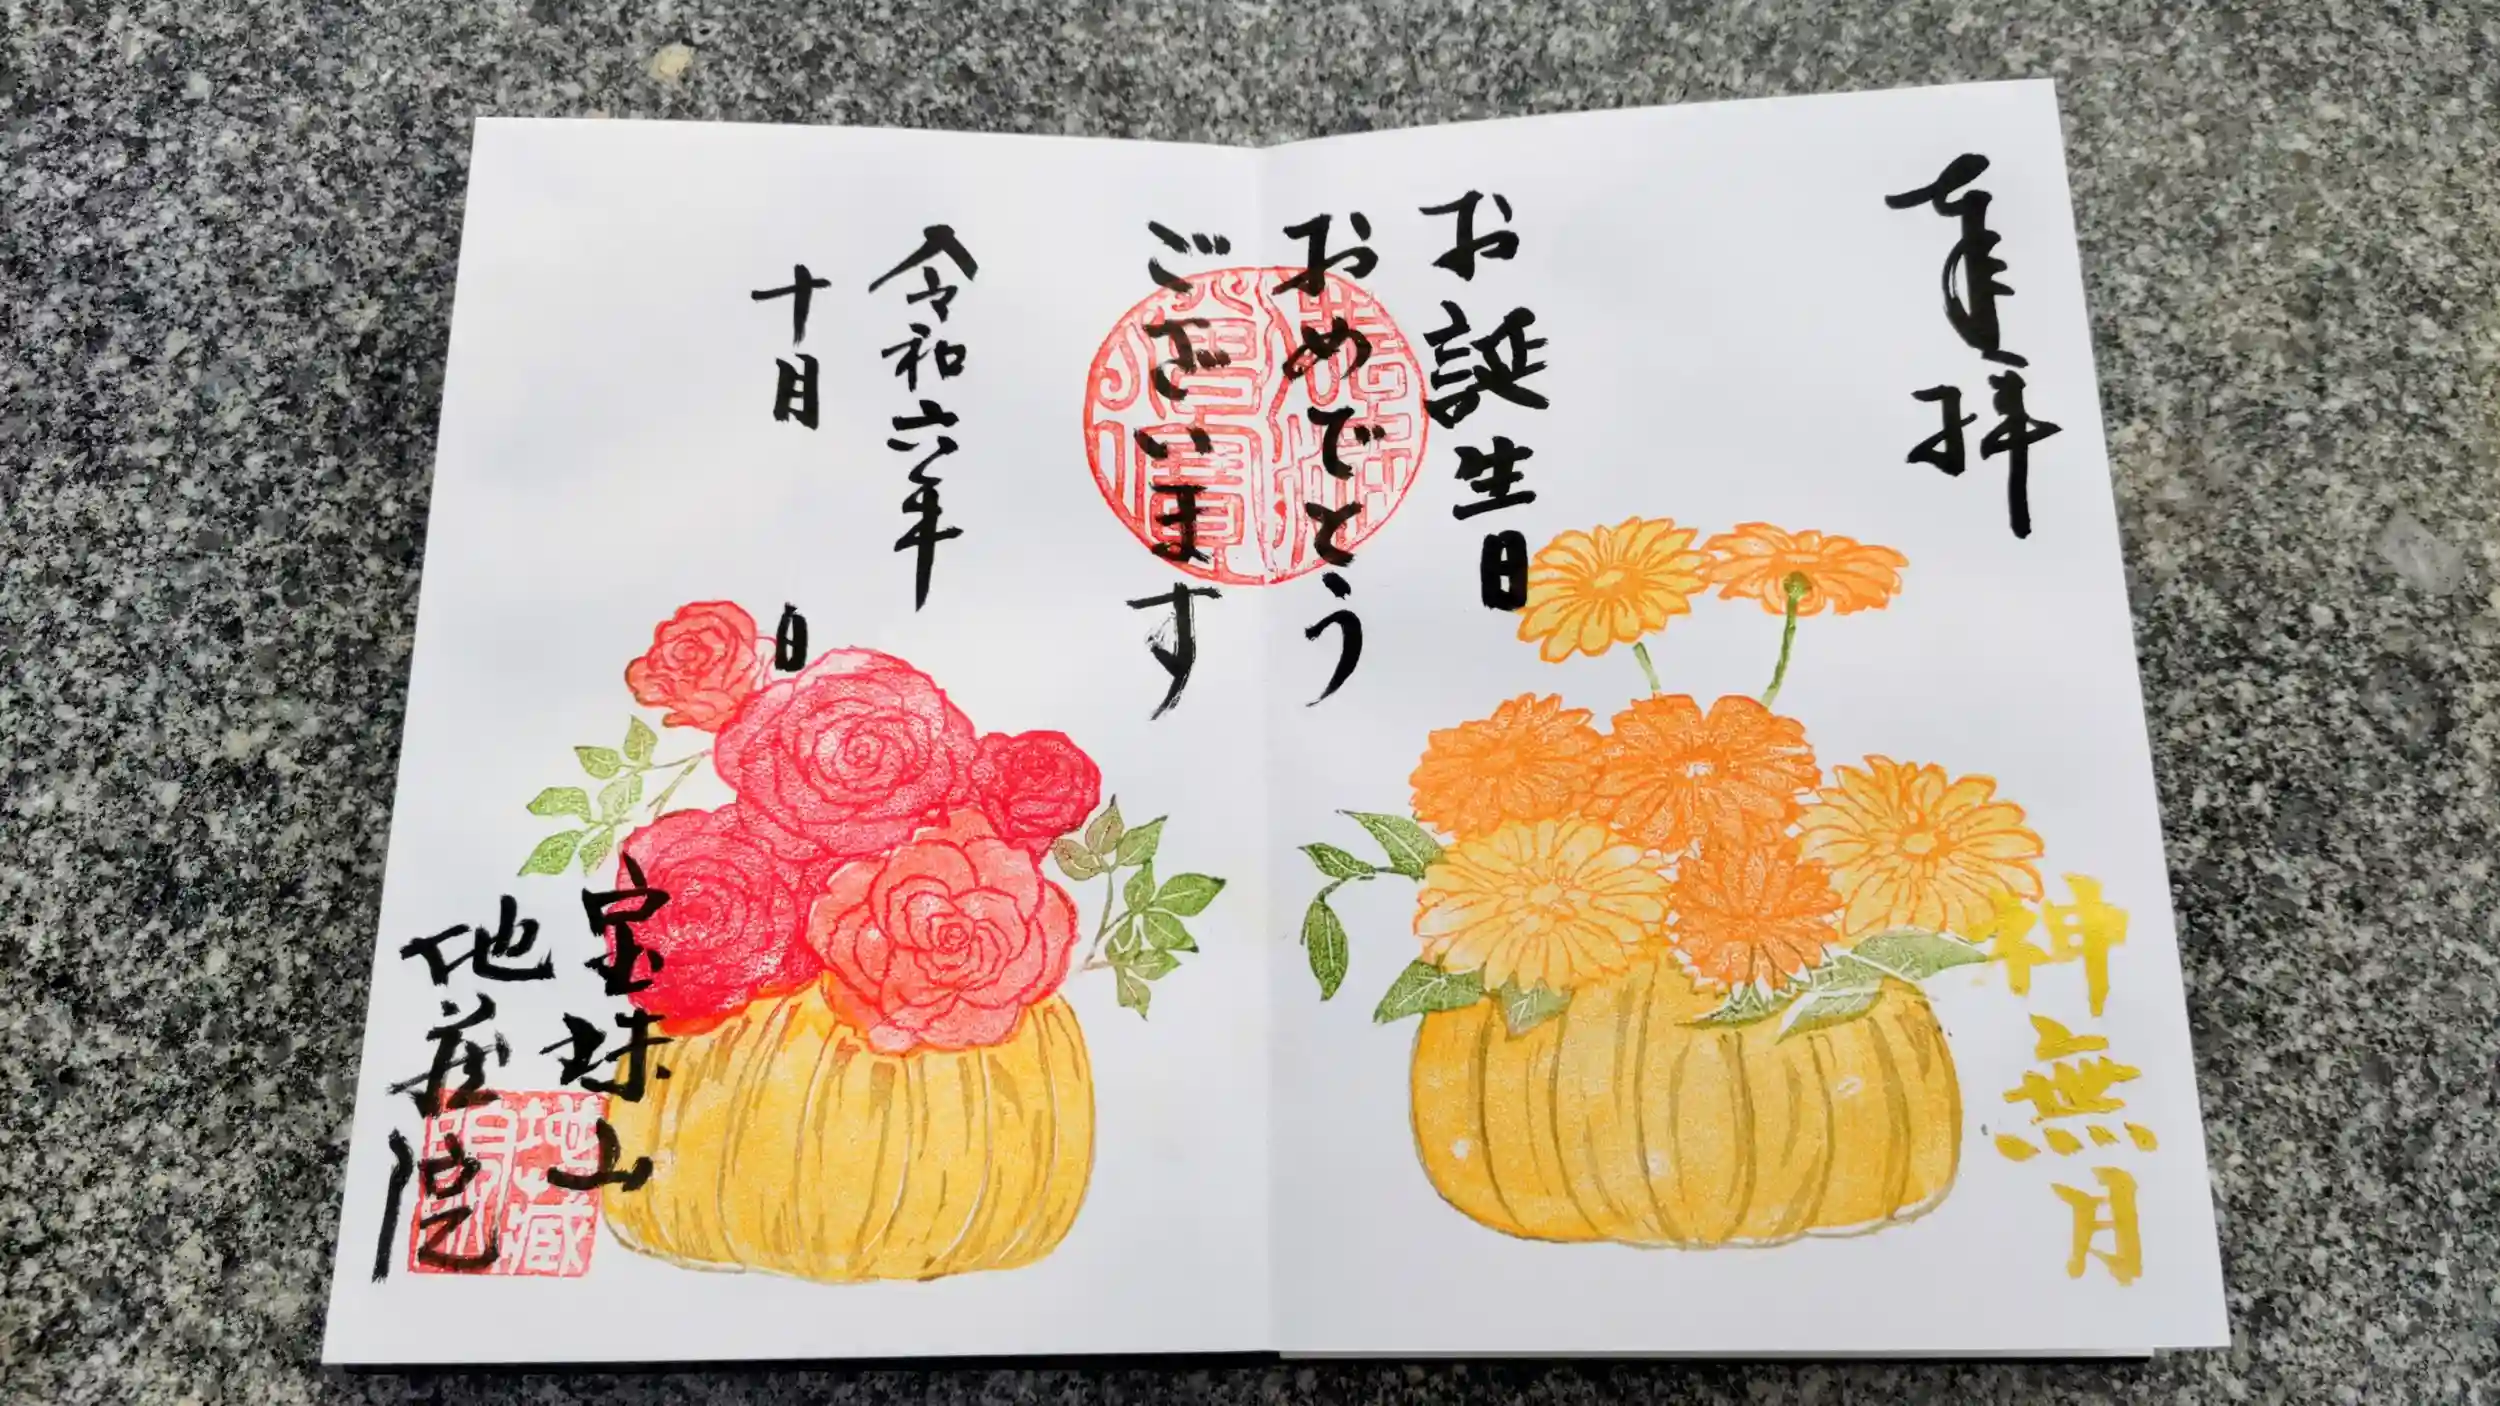 奉拝
お誕生日
おめでとう
ございます
令和六年
十月 日
神無月
宝珠山
地蔵院
地蔵院